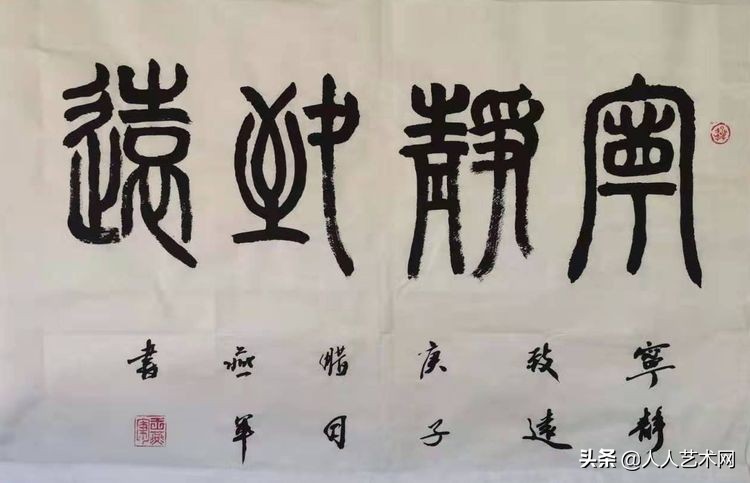 寧靜致遠
寧靜
致遠
庚子
腊月
燕军
書
头条 @人人艺术网